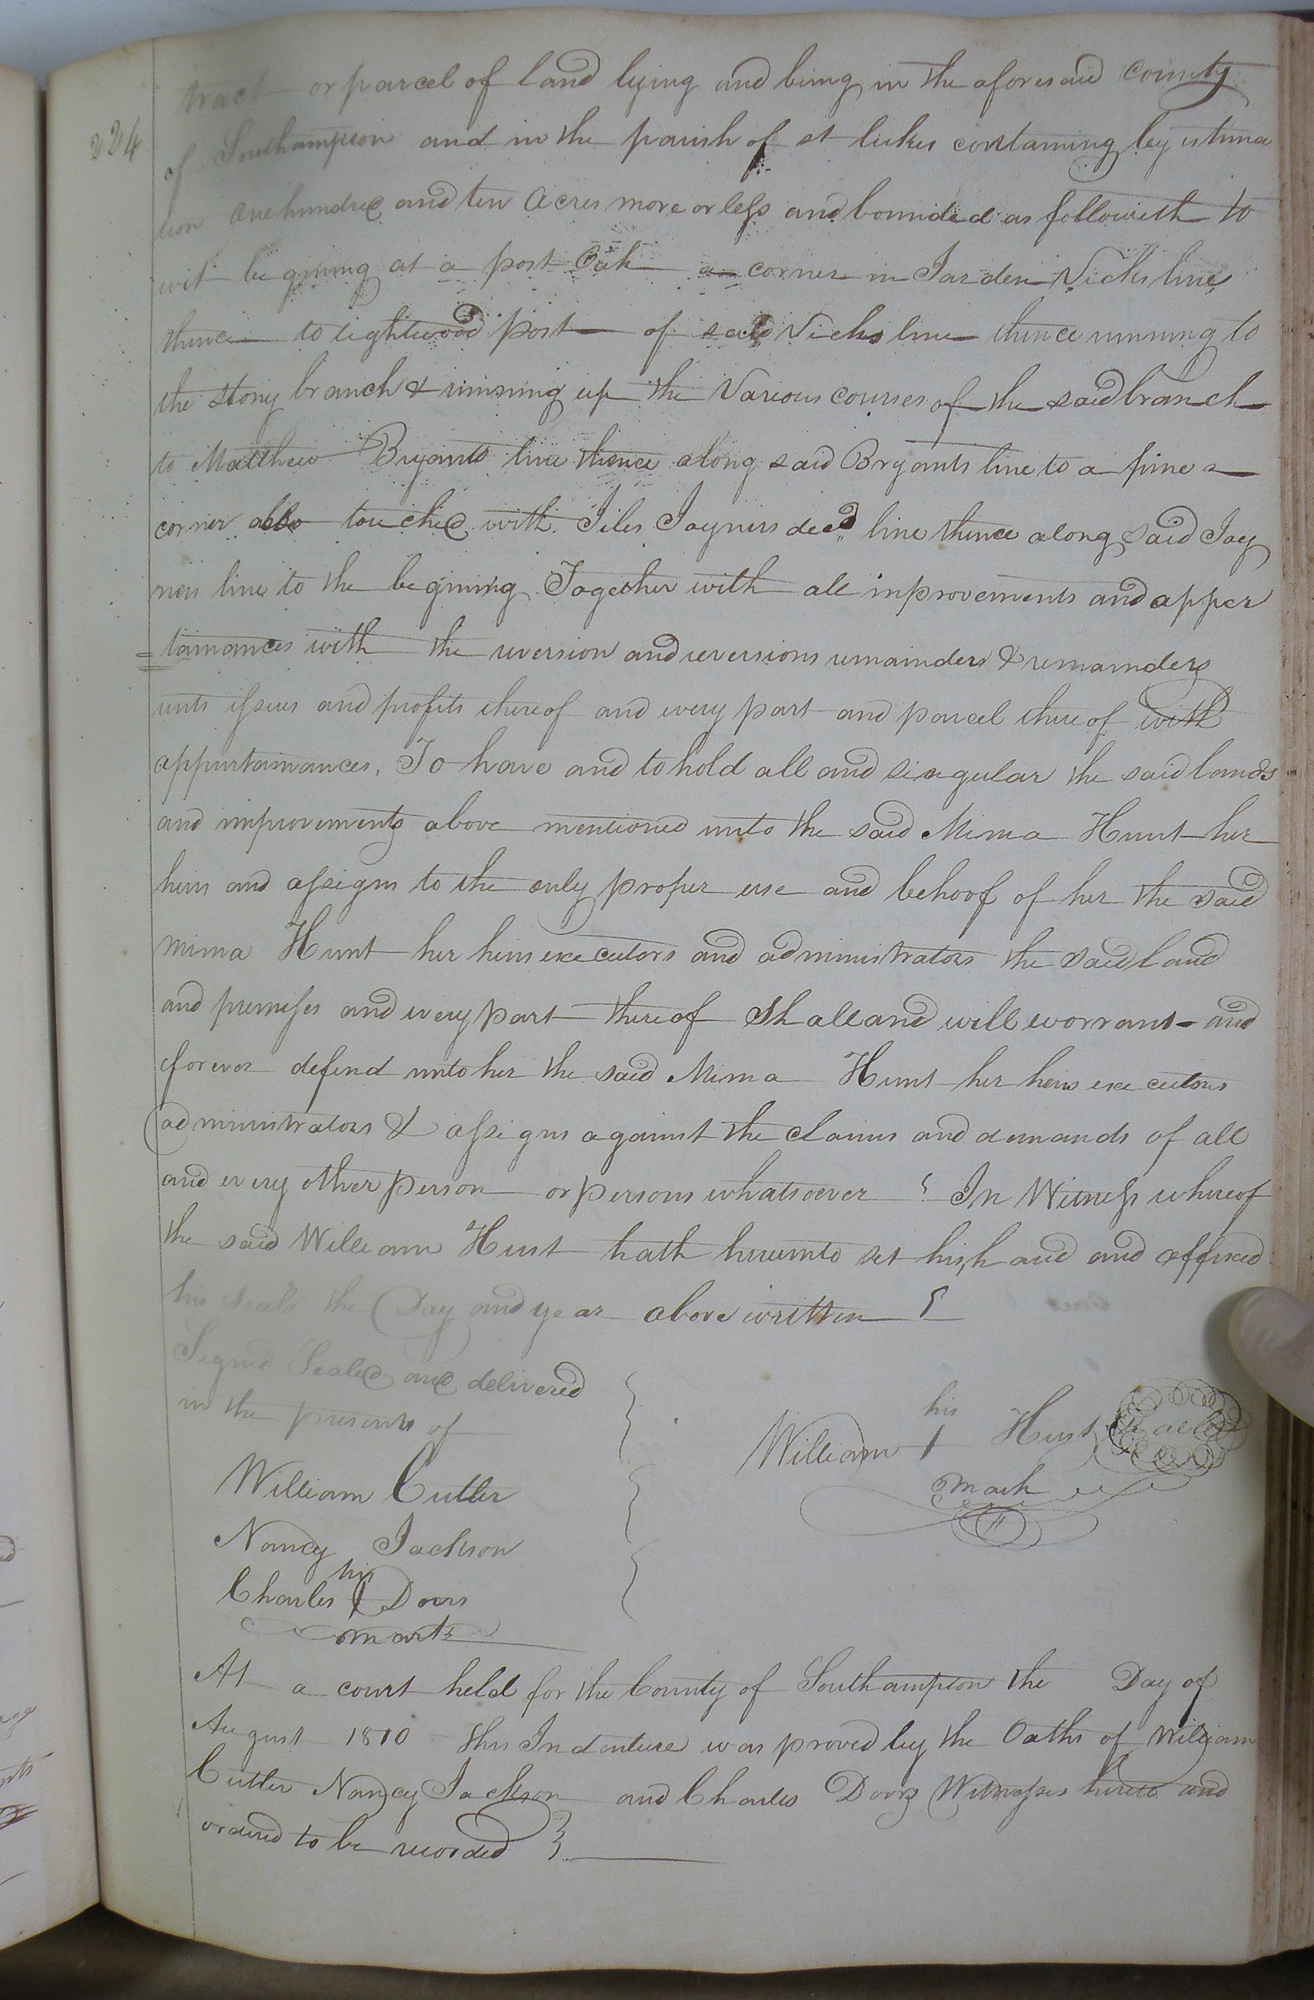 224
tract or parcel of land lying and being in the aforesaid county
of Southampton and in the parish of st lukes containing by estima
tion one hundred and ten acres more or less and bounded as followeth to
wit begining at a post oak a corner in Jarden Vicks line
thence to lightwood post of said Vicks line thence running to
the stony branch & running up the various courses of the said branch
to Matthew Bryants line thence along said Bryants line to a pine a
corner also touched with Jiles Joyners decd line thence along said Joy
ners line to the begining Together with all inprovements and apper
=tainances with the reversion and reversions remainders & remainders
rents issues and profits thereof and every part and parcel thereof with
appurtainances, To have and to hold all and singular the said lands
and improvements above mentioned unto the said Mima Hunt her
heirs and assigns to the only proper use and behoof of her the said
mima Hunt her heirs executors and administrators the said land
and premises and every part thereof shall and will worrant and
forever defend unto her the said Mima Hunt her heirs executors
administrators & assigns against the claims and demands of all
and every other person or persons whatsoever In Witness whereof
the said William Hust hath hereunto set his hand and affixed
his seals the Day and year above written
Signed Sealed and delivered
in the presents of
his
William Hust Seal
mark
William Cutler
Nancy Jackson
his
Charles Doors
mark
At a court held for the County of Southampton the Day of
August 1810 this Indenture was proved by the Oaths of William
Cutler Nancy Jackson and Charles Doors Witnesses hereto and
ordered to be recorded